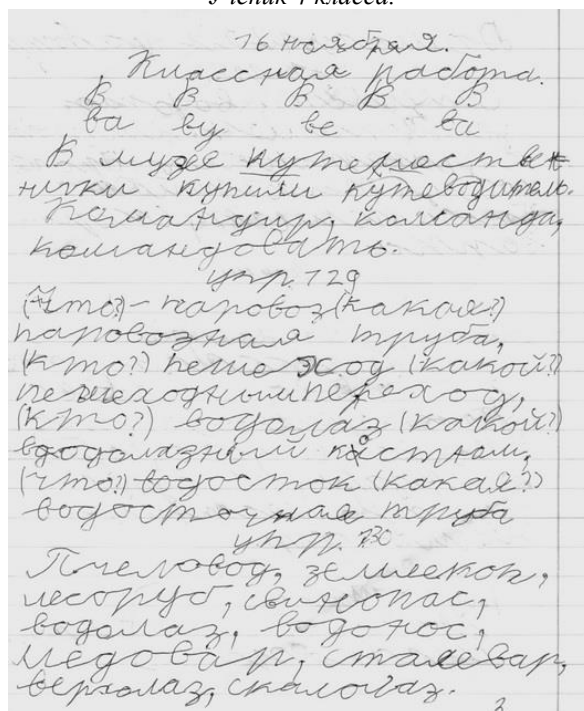 Ученик 4 класса.
16 ноября.
Классная работа.
В В В В В
ва ву ве ва
В музее путешествен-
ники купили путеводитель.
Командир, команда,
командовать.
упр. 129
(Что?) - паровоз (какая?)
паровозная труба,
(кто?) пешеход (какой?)
пешеходным переход,
(кто?) водолаз (какой?)
вдодолазный костюм,
(что?) водосток (какая?)
водосточная труба
упр. 130
Пчеловод, землекоп,
лесоруб, свинопас,
водолаз, водонос,
медовар, сталевар,
верхолаз, скалолаз.